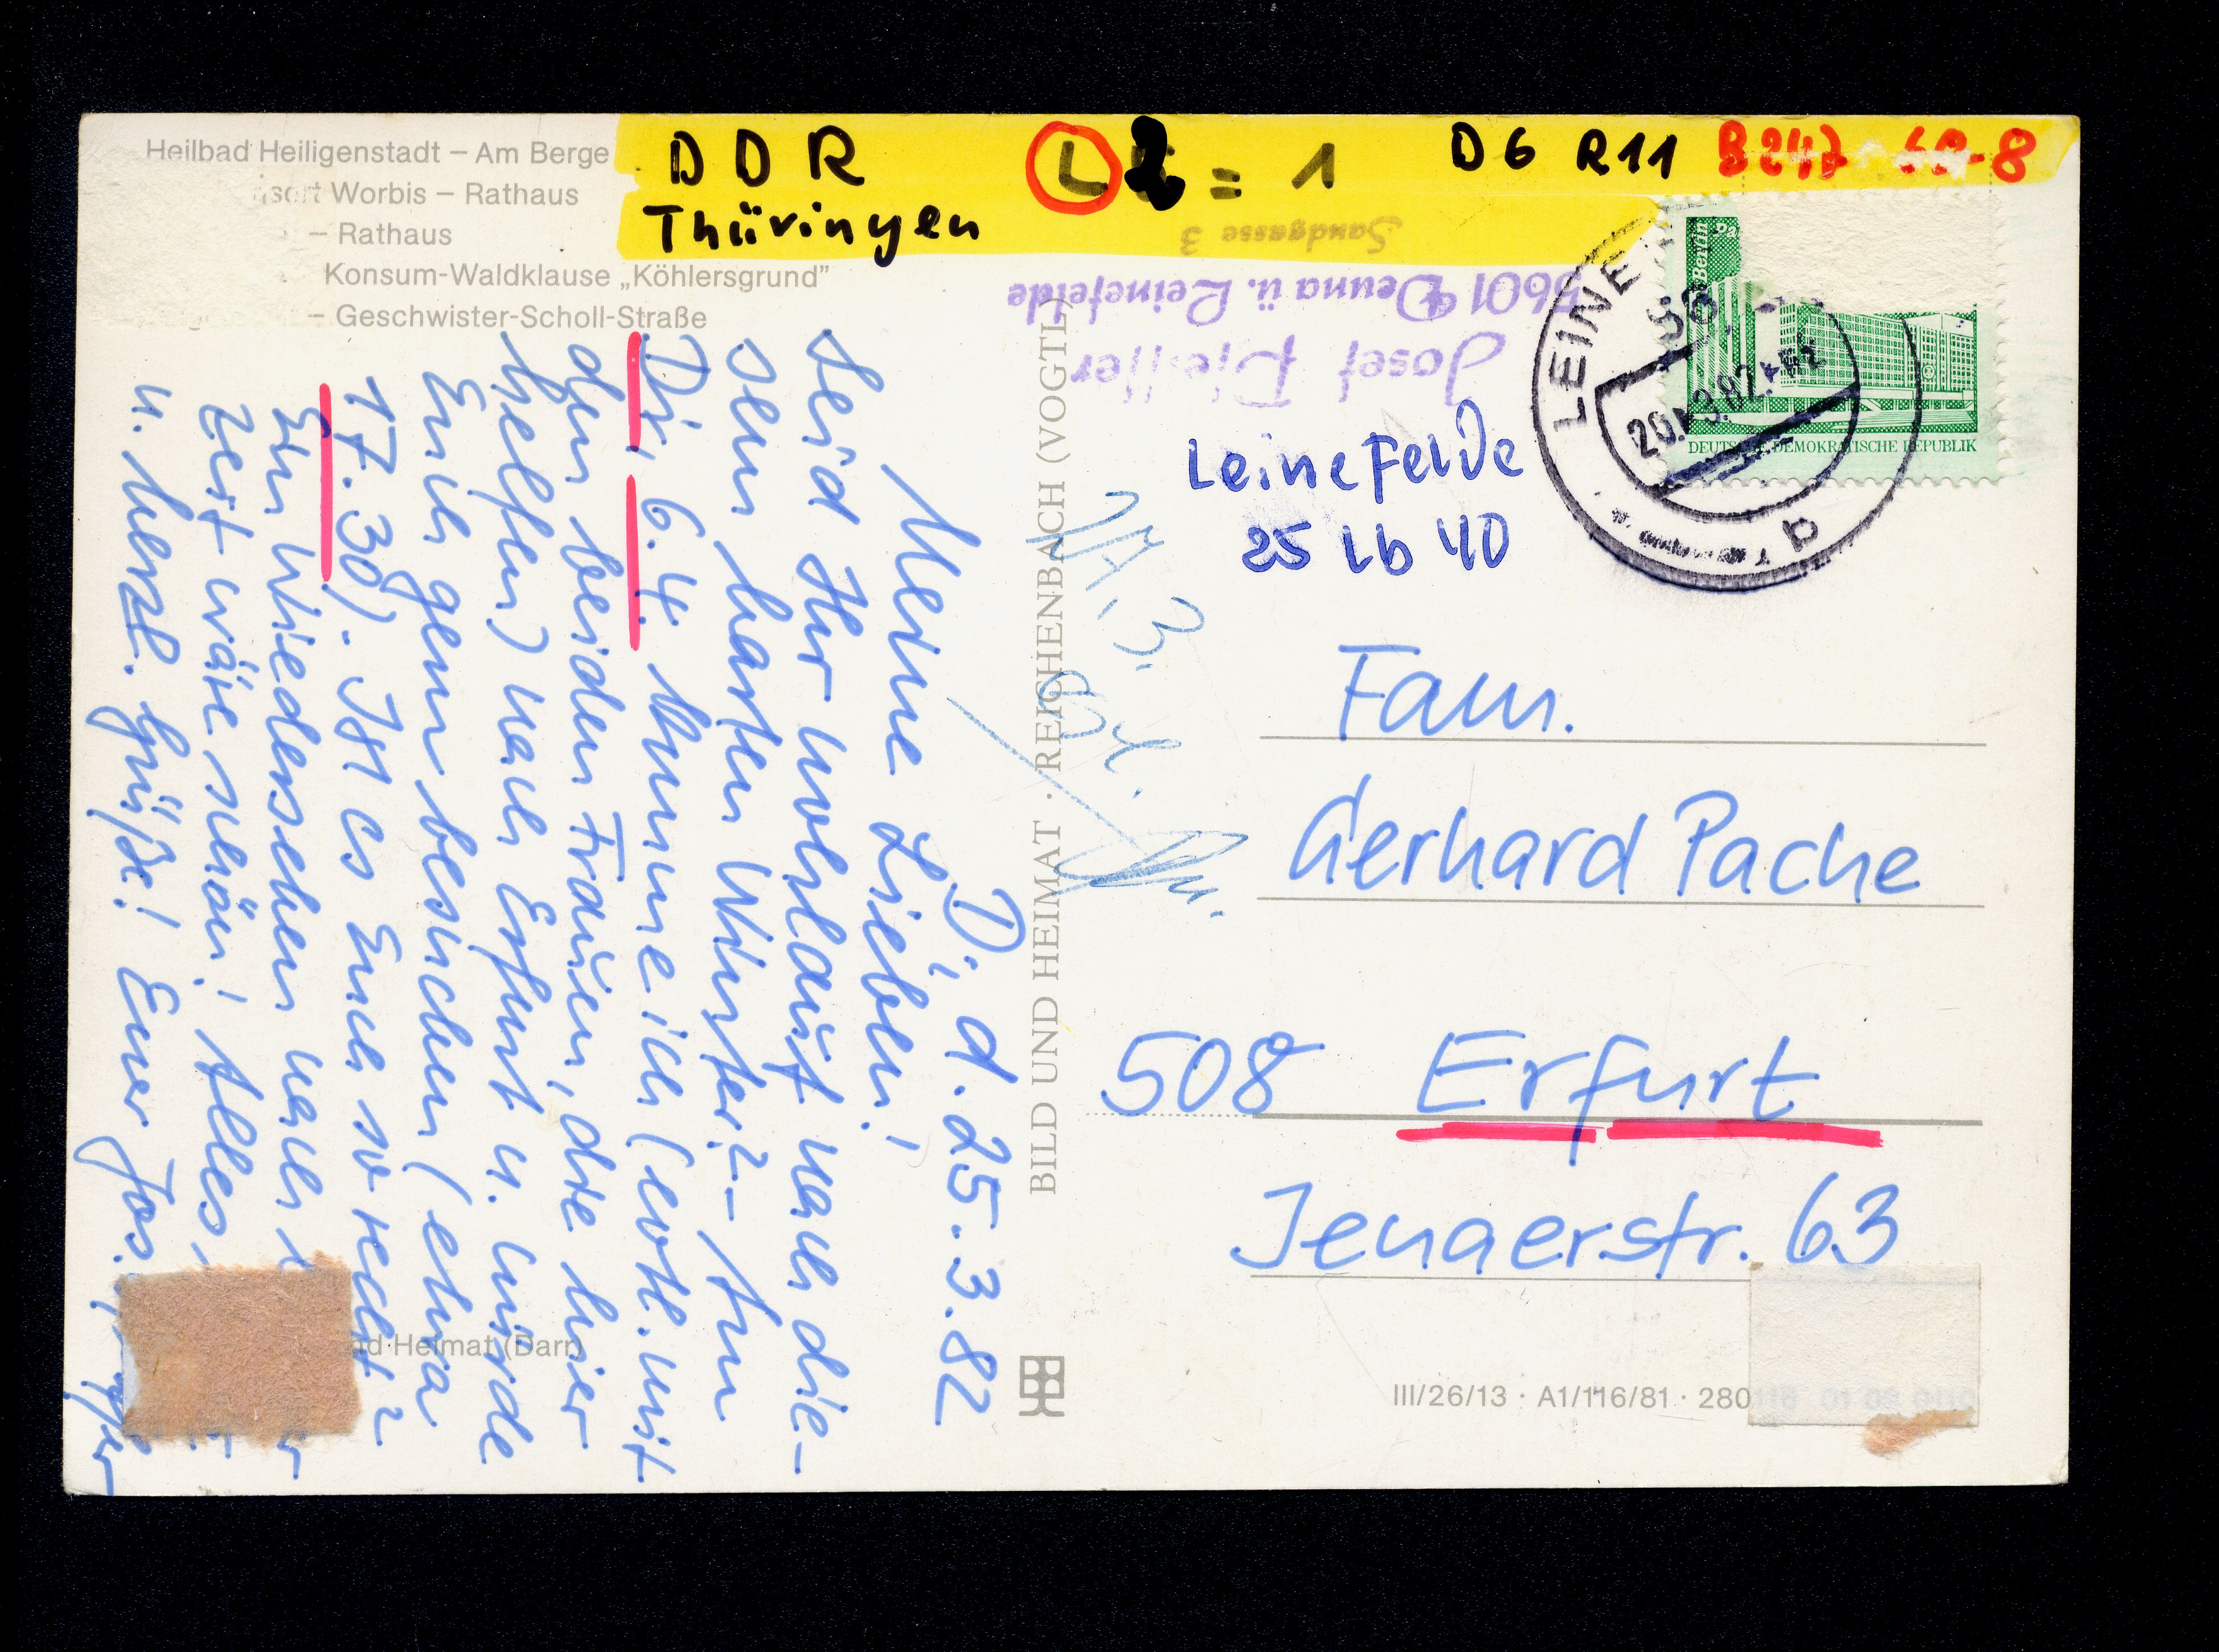 Heilbad Heiligenstadt – Am Berge
Worbis – Rathaus
– Rathaus
Konsum-Waldklause „Köhlersgrund”
– Geschwister-Scholl-Straße
DDR
Thüringen
L 2 = 1
D6 R11
B247
Josef Pfeiffer
5601 Deuna ü. Leinefelde
Sandgasse 3
Leinefelde
25 Lb 40
Berlin
DEUTSCHE DEMOKRATISCHE REPUBLIK
LEINE
56
D, d. 25.3.82
Meine Lieben!
Seid Ihr wohlauf nach die-
sem harten Winter? – Am
Di, 6.4. komme ich (evtl. mit
den beiden Frauen, die hier
helfen) nach Erfurt u. würde
Euch gern besuchen (etwa
17.30). Ist es Euch so recht?
Ein Wiedersehen nach
Zeit wäre schön! Alles
u. herzl. Grüße! Euer Jos.
BILD UND HEIMAT · REICHENBACH (VOGTL)
Fam.
Gerhard Pache
508 Erfurt
Jenaerstr. 63
nd Heimat (Darr)
III/26/13 · A1/116/81 · 280